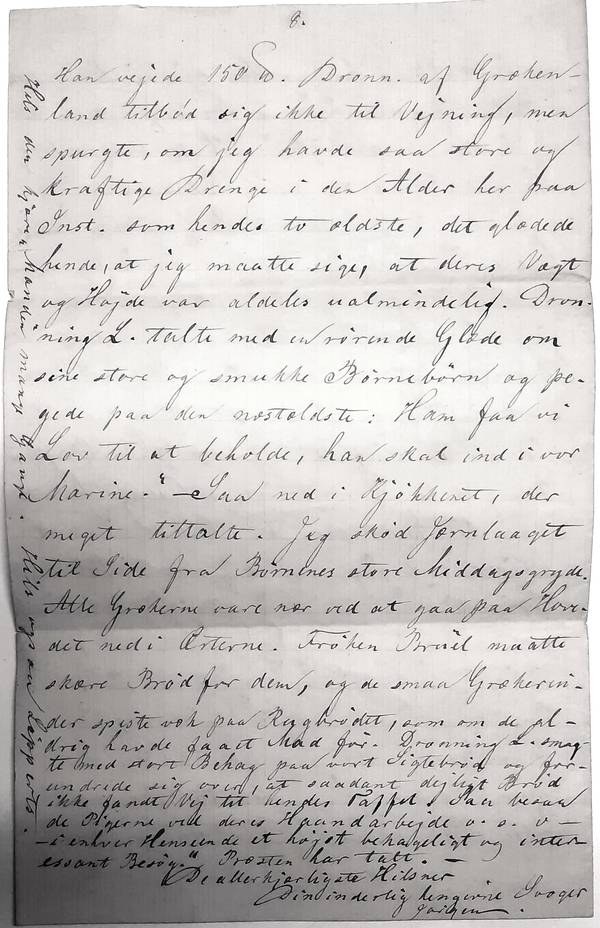 8.
Han vejede 150 ℔. Dronn. af Græken-
land tilbød sig ikke til Vejning, men
spurgte, om jeg havde saa store og
kraftige Drenge i den Alder her paa
Inst. som hendes to ældste, det glædede
hende, at jeg maatte sige, at deres Vægt
og Højde var aldeles ualmindelig. Dron-
ning L. talte med en rørende Glæde om
sine store og smukke Børnebörn og pe-
gede paa den næstældste: Ham faa vi
Lov til at beholde, han skal ind i vor
Marine." — Saa ned i Kjøkkenet, der
meget tiltalte. Jeg skød Jærnlaaget
til Side fra Børnenes store Middagsgryde.
Alle Grækerne vare nær ved at gaa paa Hove-
det ned i Ærterne. Frøken Bruël maatte
skære Brød for dem, og de smaa Grækerin-
der spiste væk paa Rugbrødet, som om de al-
drig havde faaet Mad før. Dronning L. smag-
te med stort Behag paa vort Sigtebrød og for-
undrede sig over, at saadant dejligt Brød
ikke fandt Vej til hendes Taffel. Saa besaa
de Pigerne ved deres Haandarbejde o. s. v —
— i enhver Henseende et højst behageligt og inter-
essant Besøg." Præsten har talt. —
De allerkjærligste Hilsner
Din inderlig hengivne Svoger
Jørgen.
Hils den kjære Manden mange Gange. Hils ogsaa Lipperts.